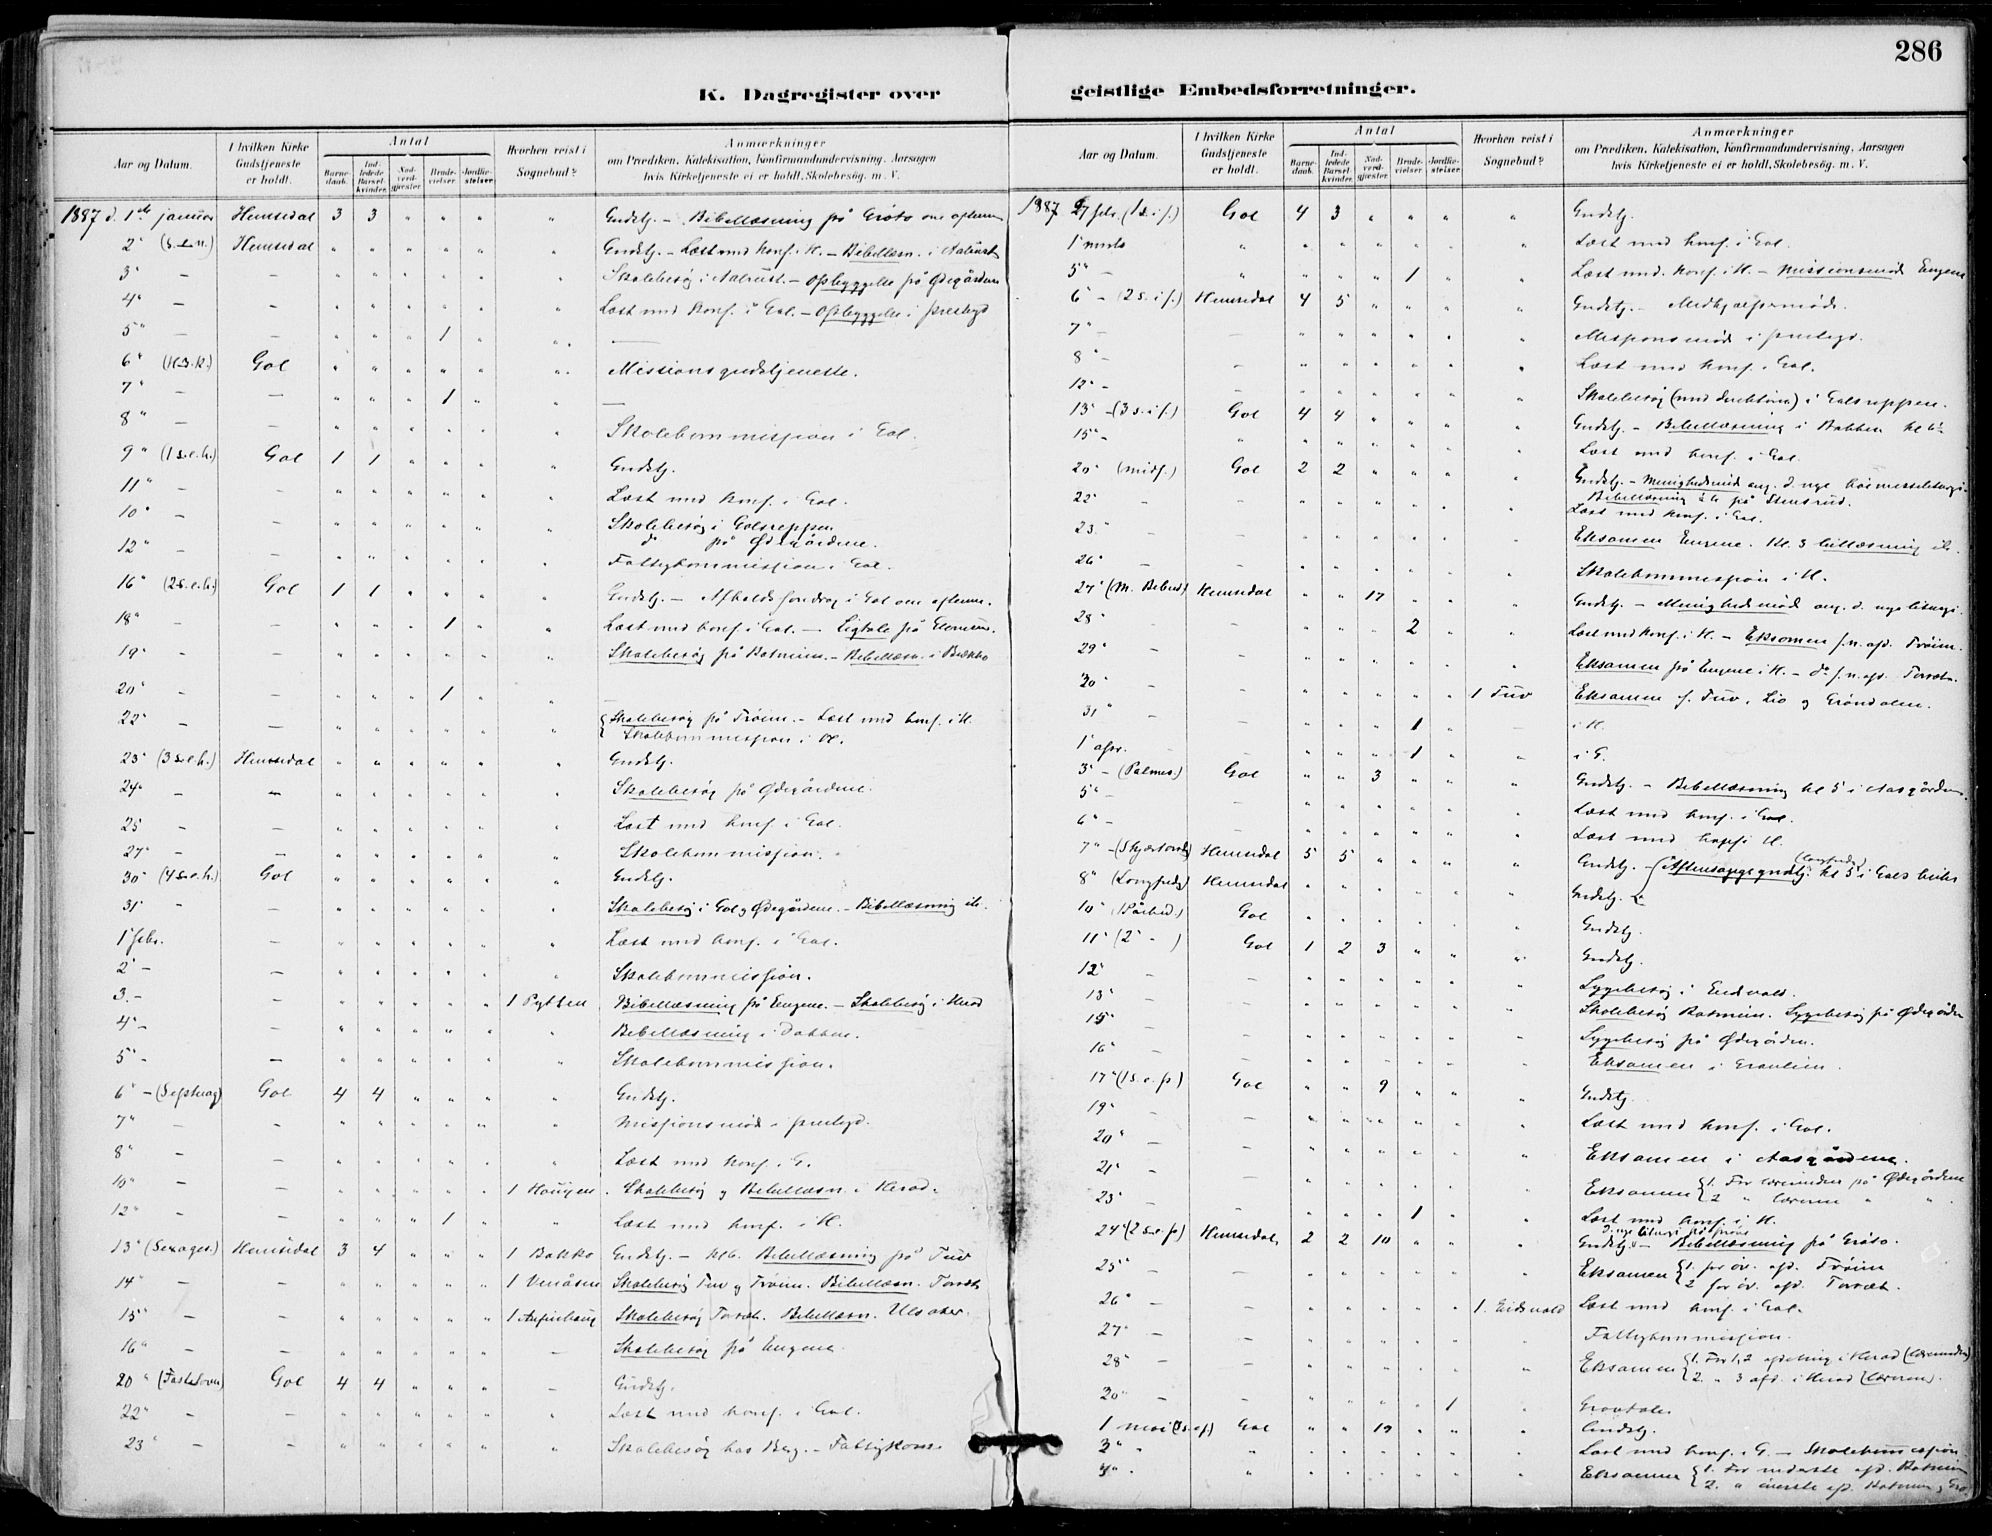 286
K. Dagregister over geistlige Embedsforretninger.
Aar og Datum. I hvilken Kirke Gudstjeneste er holdt. Antal Barnedaab. Indledede Barselkvinder. Nadverdgjæster. Brudevielser Jordfæstelser. Hvorhen reist i Sognebud? Anmærkninger om Prædiken, Katekisation, Konfirmandundervisning, Aarsagen hvis Kirketjeneste ei er holdt, Skolebesøg, m. V.
1887 d. 1ste januar Hemsedal 3 3 " " " " Gudstj. – Bibellæsning på Grøto om aftenen
2" (s.e.n.) Hemsedal " " " " " " Gudstj. – Læst med konf. i H. – Bibellæsn. i Aalrust
3" – – " " " " " " Skolebesøg i Aalrust. – Opbyggelse på Ødegårdene
4" – – " " " " " " Læst med konf. i Gol. – Opbyggelse i prestegd
5" – – " " " 1 " " —
6" (H.3.k.) Gol " " " " " " Missionsgudstjeneste.
7" – – " " " 1 " " —
8" – – " " " " " " Skolekommission i Gol.
9" (1 s.e.h.) Gol 1 1 " " " " Gudstj.
11" – – " " " " " " Læst med konf. i Gol.
10" – – " " " " " " Skolebesøg i Golsreppen
do på Ødegårdene.
12" – – " " " " " " Fattigkommission i Gol.
16" (2 s.e.h.) Gol 1 1 " " " " Gudstj. – Afholdsforedrag i Gol om aftenen.
18" – – " " " 1 " " Læst med konf. i Gol. – Ligtale på
19" – – " " " " " " Skolebesøg på Rotneim. – Bibellæsn. i Bekko
20" – – " " " 1 " "
22" – – " " " " " " Skolebesøg på Trøim. – Læst med konf. i H.
Skolekommission i H.
23" (3 s.e.h.) Hemsedal " " " " " " Gudstj.
24" – – " " " " " " Skolebesøg på Ødegårdene.
25 – – " " " " " " Læst med konf. i Gol.
27" – – " " " " " " Skolekommission.
30" (4 s.e.h.) Gol " " " " " " Gudstj.
31" – – " " " " " " Skolebesøg i Gol og Ødegårdene. – Bibellæsning ib.
1 febr. – " " " " " " Læst med konf. i Gol.
2" – – " " " " " " Skolekommission.
3. – – " " " " " 1 Pytten Bibellæsning på Engene. – Skolebesøg i Herad
4" – – " " " " " " Bibellæsning i Dokken.
5" – – " " " " " " Skolekommission.
6" – (Septuag) Gol 4 4 " " " " Gudstj.
7" – – " " " " " " Missionsmøde i prestegd.
8" – – " " " " " " Læst med konf. i G.
10" – – " " " " " 1 Haugen. Skolebesøg og Bibellæsn. i Herad.
12" – – " " " 1 " " Læst med konf. i H.
13" (Sexages.) Hemsedal 3 4 " " " 1 Bakko Gudstj. – kl 6. Bibellæsning på Tuv
14" – – " " " " " 1 Venåsen Skolebesøg Tuv og Trøim. Bibellæsn. Torset
15" – – " " " " " 1 Skolebesøg Torset. Bibellæsn. Ulsaker.
16" – – " " " " " – Skolebesøg på Engene.
20" (Fastelavn) Gol 4 4 " " " – Gudstj.
22" – – " " " " " " Læst med konf. i Gol.
23" – – " " " " " " Skolebesøg hos Berg. – Fattigkoms.
Aar og Datum. I hvilken Kirke Gudstjeneste er holdt. Antal Barnedaab. Indledede Barselkvinder. Nadverdgjæster. Brudevielser. Jordfæstelser. Hvorhen reist i Sognebud? Anmærkninger om Prædiken, Katekisation, Konfirmandundervisning, Aarsagen hvis Kirketjeneste ei er holdt, Skolebesøg, m. V.
1887 27 febr. (1 s.i f.) Gol 4 3 " " " " Gudstj.
1 marts " " " " " " " Læst med konf. i Gol.
5" – " " " " 1 " " Læst med konf. i H. – Missionsmøde Engene
6" – (2 s.i f.) Hemsedal 4 5 " " " " Gudstj. –
7" – – " " " " " " Missionsmøde i prestegd.
8" – – " " " " " " Læst med konf. i Gol.
12" – – " " " " " " Skolebesøg (med direktøren) i Golsreppen.
13" – (3 s.i f.) Gol 4 4 " " " " Gudstj. – Bibellæsning i Bakken kl 6½
15" – " " " " " " " Læst med konf. i Gol.
20" (midf.) Gol 2 2 " " " " Gudstj. – Menighedsmøde ang. d. nye høimesseliturgi.
Bibellæsning på Stensrud.
22" – " " " " " " Læst med konf. i Gol.
23" – – " " " " " " Eksamen Engene. Kl. 3 bibellæsning ib.
26" – – " " " " " " Skolekommission i H.
27" (M. Bebud) Hemsedal " " 17 " " " Gudstj. – Menighedsmøde ang. d. nye liturgi.
28" – – " " " 2 " " Læst med konf. i H. – Eksamen f. n. afd. Trøim.
29" – – " " " " " " Eksamen på Engene i H. – do f. n. afd. Torset.
30" – – " " " " " 1 Tuv Eksamen f. Tuv, Lio og Grøndalen.
31" – – " " " 1 " – i H.
1 apr. – " " " 1 " " i G.
3" – (Palmes.) Gol " " 3 " " " Gudstj. – Bibellæsning kl 5 i Aasgårdene.
5" – – " " " " " " Læst med konf. i Gol.
6" – – " " " " " " Læst med konf. i H.
7" – (Skjærtorsdg) Hemsedal 5 5 " " " " Gudstj. – (Aftensangsgudstj. (langfredg) kl 5 i Gols kirke
8" (Langfredg) Hemsedal " " " " " " Gudstj.
10" (1 Påsked.) Gol " " " " " " Gudstj.
11" (2" – ) Gol 1 2 3 " " " Gudstj.
12" – – " " " " " " Sygebesøg i Eidsvold.
13" – – " " " " " " Skolebesøg Rotneim. Sygebesøg på Ødegården
15" – – " " " " " " Sygebesøg på Ødegården.
16" – – " " " " " " Eksamen i
17" (1 s.e.p) Gol " " 9 " " " Gudstj.
19" – – " " " " " " Læst med konf. i Gol.
20" – – " " " " " " Eksamen i Aasgårdene.
21" – – " " " " " " Eksamen { 1. For lærerinden på Ødegårdene
2 " læreren " "
23" – – " " " 1 " " Læst med konf. i H.
d. nye liturgi på prøve
24" (2 s.e.p) Hemsedal 2 2 10 " " " Gudstj. – Bibellæsning på Grøto.
25" – – " " " " " " Eksamen { 1. for øv. afd. Trøim
2 for øv. afd. Torset.
26" – – " " " " " 1. Eidsvold Læst med konf. i Gol.
27" – – " " " " " " Fattigkommission.
28" – – " " " " " " Eksamen { 1. For 1, 2 afdeling i Herad (lærerinden)
2. " 3 afd. i Herad (læreren).
30" – – " " " " 1 " Gravtale.
1 mai (3 s.e.p) Gol " " 19 " " " Gudstj.
3" " " " " " " " " Læst med konf. i G. – Skolekommission
4" " " " " " " " " Eksamen { 1. For nederste afd. Rotneim
2. " øverste afd. Rotneim og